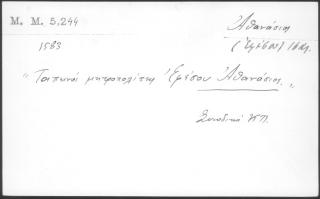 M. M. 5,244
Ἀθανάσιος
(Ἐφέσου)
1583
"Ταπεινὸς μητροπολίτης Ἐφέσου Ἀθανάσιος."
Συνοδικὰ ΚΠ.